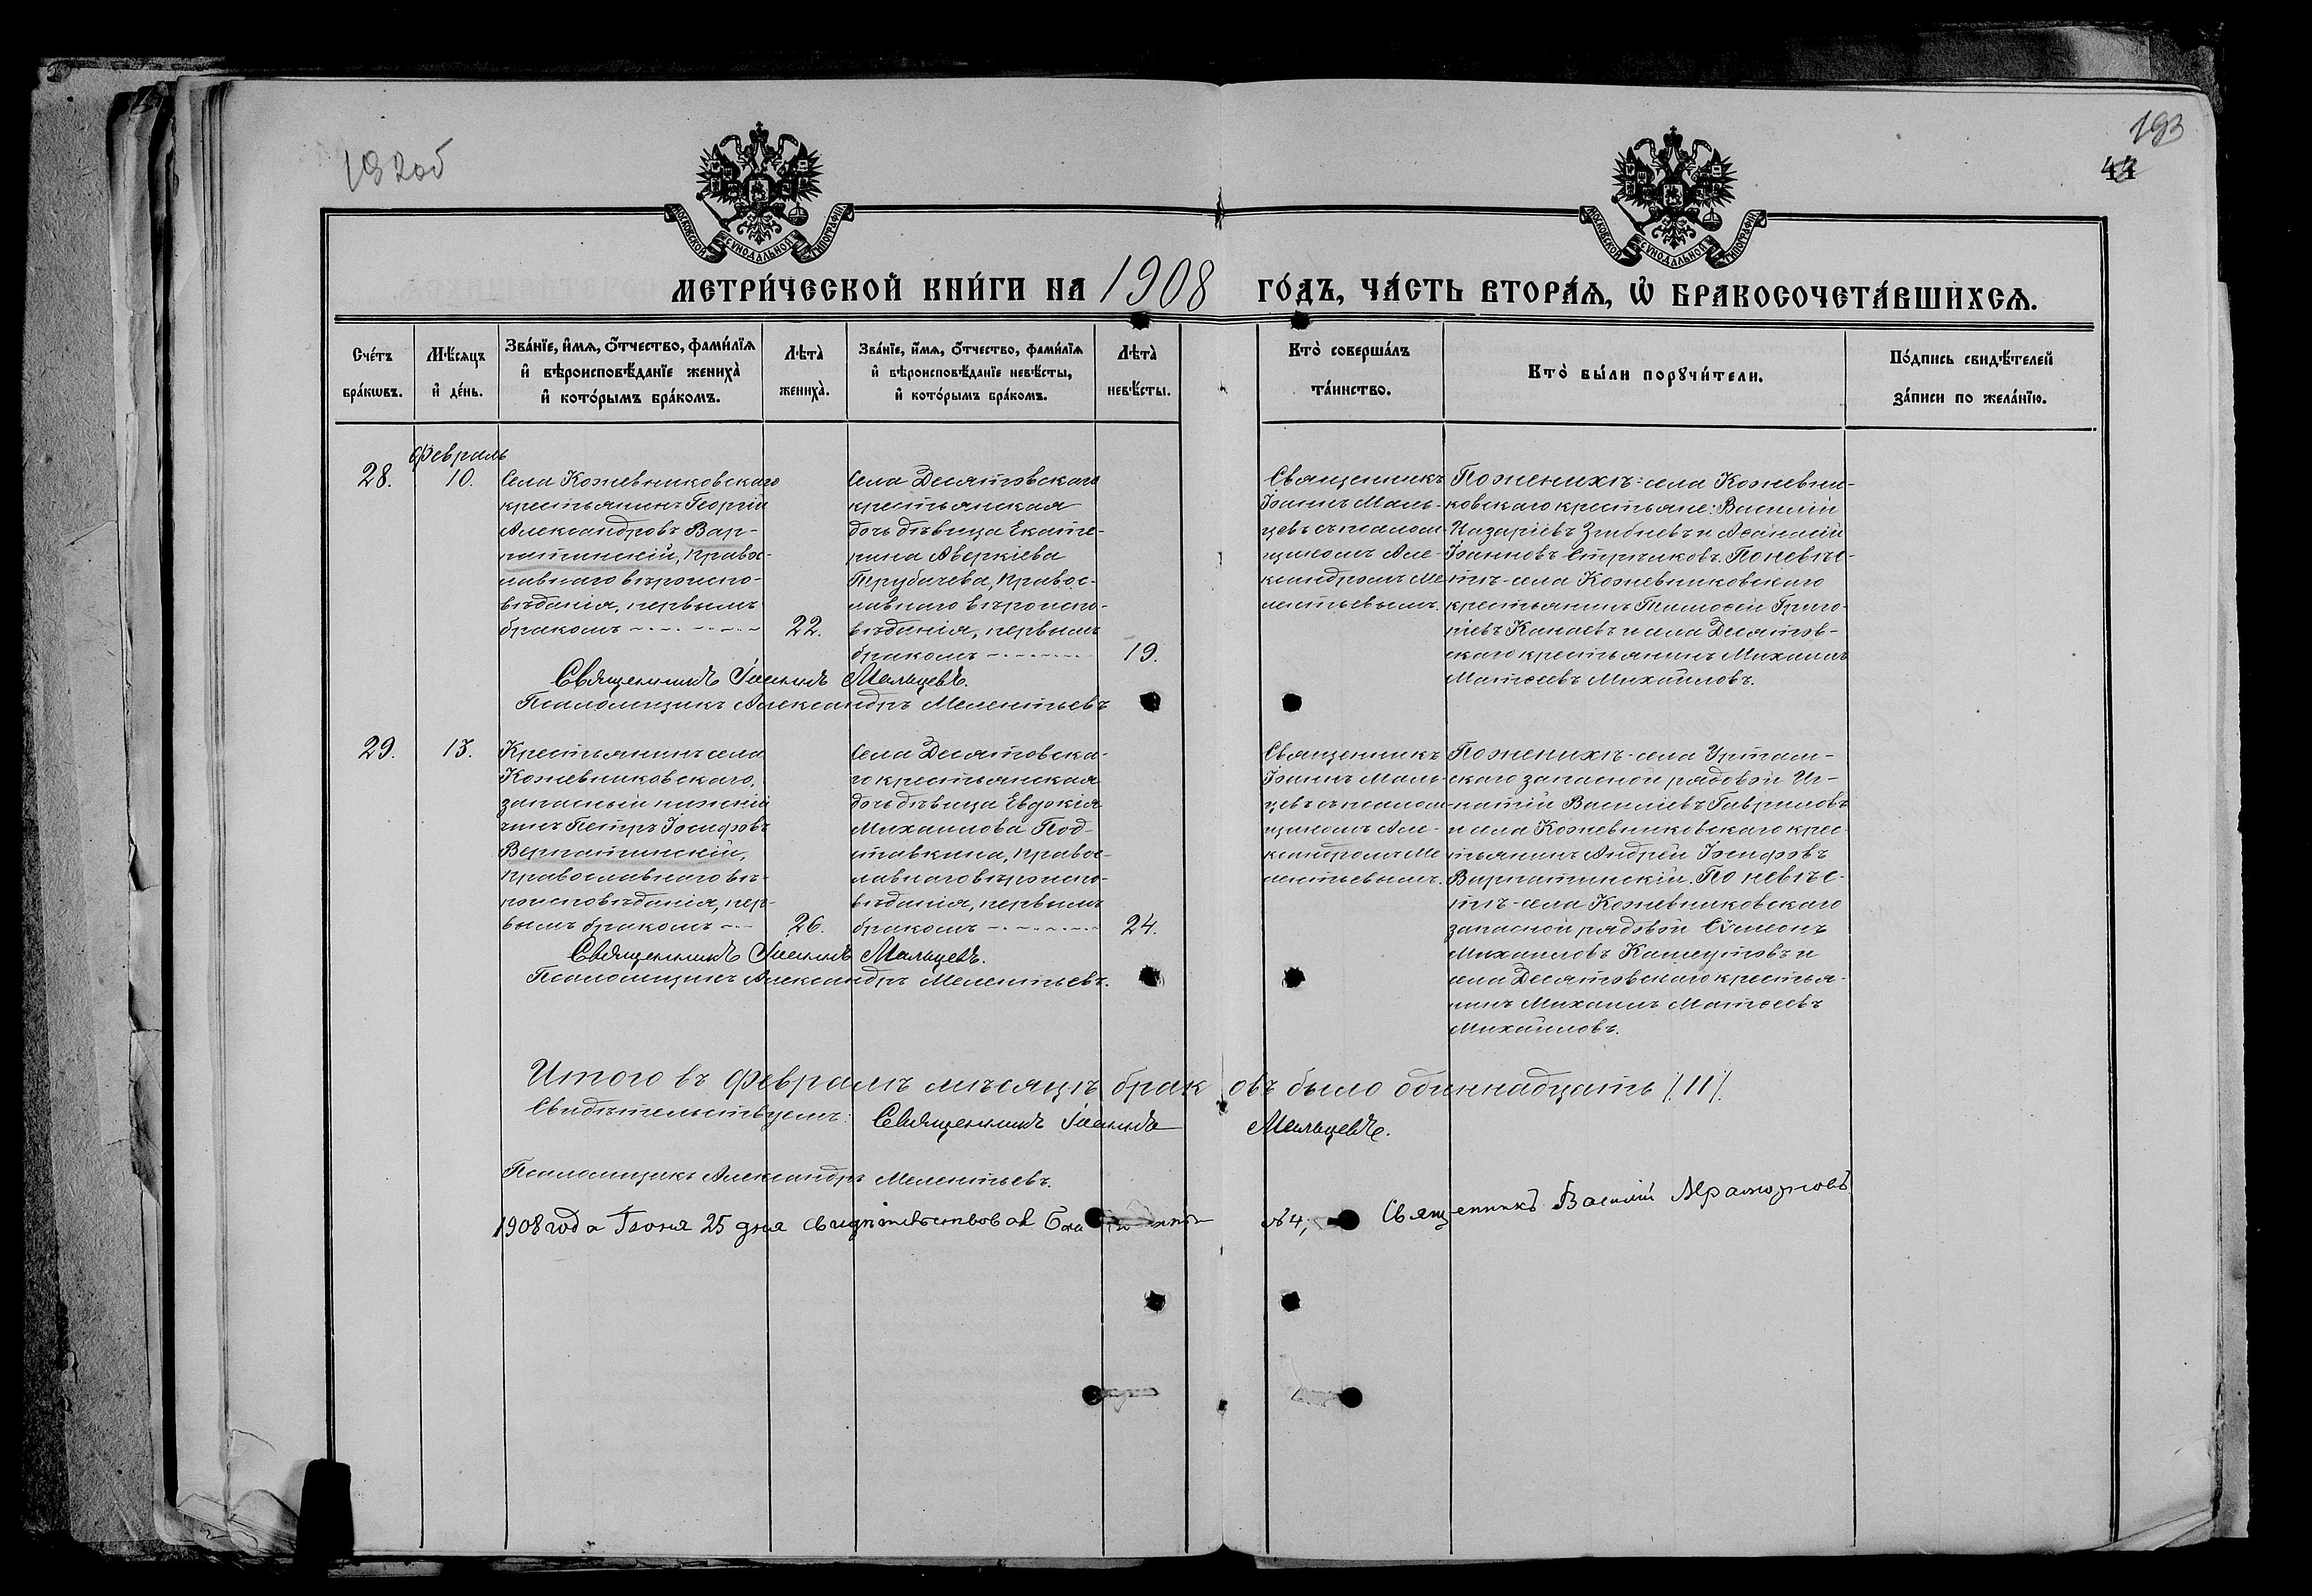 192об
193
44
МОСКОВСКОЙ СѴНОДАЛЬНОЙ ТИПОГРАФІИ
МОСКОВСКОЙ СѴНОДАЛЬНОЙ ТИПОГРАФІИ
МЕТРИ́ЧЕСКОЙ КНИ́ГИ НА 1908 ГО́ДЪ, ЧА́СТЬ ВТОРА́Ѧ, Ѡ БРАКОСОЧЕТА́ВШИХСѦ.
Сче́тъ
бра́кѡвъ.
Мѣ́сяцъ
и҆ де́нь.
Зва́нїе, и҆́мѧ, ѻ҆́тчество, фами́лїѧ
и҆ вѣроисповѣ́данїе жениха̀
и҆ кото́рымъ бра́комъ.
Лѣта̀
жениха̀.
Зва́нїе, и҆́мѧ, ѻ҆́тчество, фами́лїѧ
и҆ вѣроисповѣ́данїе невѣ́сты,
и҆ кото́рымъ бра́комъ.
Лѣта̀
невѣ́сты.
Кто̀ соверша́лъ
та́инство.
Кто̀ бы́ли порꙋчи́тели.
По́дпись свидѣ́телей
за́писи по жела́нїю.
Февраль
28.
10.
Села Кожевниковскаго
крестьянинъ Георгій
Александровъ Вар-
патинскій, правос-
лавнаго вѣроиспо-
вѣданія, первымъ
бракомъ
22.
Села Десятовскаго
крестьянская
дочь дѣвица Екате-
рина Аверкіева
Трубачева, правос-
лавнаго вѣроиспо-
вѣданія, первымъ
бракомъ
19.
Священникъ
Іоаннъ Маль-
цевъ съ псалом-
щикомъ Але-
ксандромъ Ме-
лентьевымъ.
По женихѣ: села Кожевни-
ковскаго крестьяне: Василій
Назаріевъ Згибневъ и Аѳанасій
Іоанновъ Стрѣлковъ. По невѣс-
тѣ - села Кожевниковскаго
крестьянинъ Тимоѳей Григо-
ріевъ Канаевъ и села Десятов-
скаго крестьянинъ Михаилъ
Матѳеевъ Михайловъ.
Священникъ Іоаннъ Мальцевъ.
Псаломщикъ Александръ Мелентьевъ
29.
13.
Крестьянинъ села
Кожевниковскаго,
запасный нижній
чинъ Петръ Іосифовъ
Варпатинскій,
православнаго вѣ-
роисповѣданія, пер-
вымъ бракомъ
26.
Села Десятовска-
го крестьянская
дочь дѣвица Евдокія
Михаилова Под-
ставкина, правос-
лавнаго вѣроиспо-
вѣданія, первымъ
бракомъ
24.
Священникъ
Іоаннъ Маль-
цевъ съ псалом-
щикомъ Але-
ксандромъ Ме
лентьевымъ.
По женихѣ - села Уртам-
скаго запасной рядовой Иг-
натій Василіевъ Гавриловъ
и села Кожевниковскаго крес-
тьянинъ Андрей Іосифовъ
Варпатинскій. По невѣс-
тѣ - села Кожевниковскаго
запасной рядовой Сѵмеонъ
Михаиловъ и
села Десятовскаго крестья-
нинъ Михаилъ Матѳеевъ
Михайловъ.
Священникъ Іоаннъ Мальцевъ.
Псаломщикъ Александръ Мелентьевъ.
Итого въ Февралѣ мѣсяцѣ браковъ было одиннадцать /11/.
Свидѣтельствуемъ: Священникъ Іоаннъ Мальцевъ.
Псаломщикъ Александръ Мелентьевъ.
1908 года Іюня 25 дня свидѣтельствовалъ № 4, Священникъ Василій